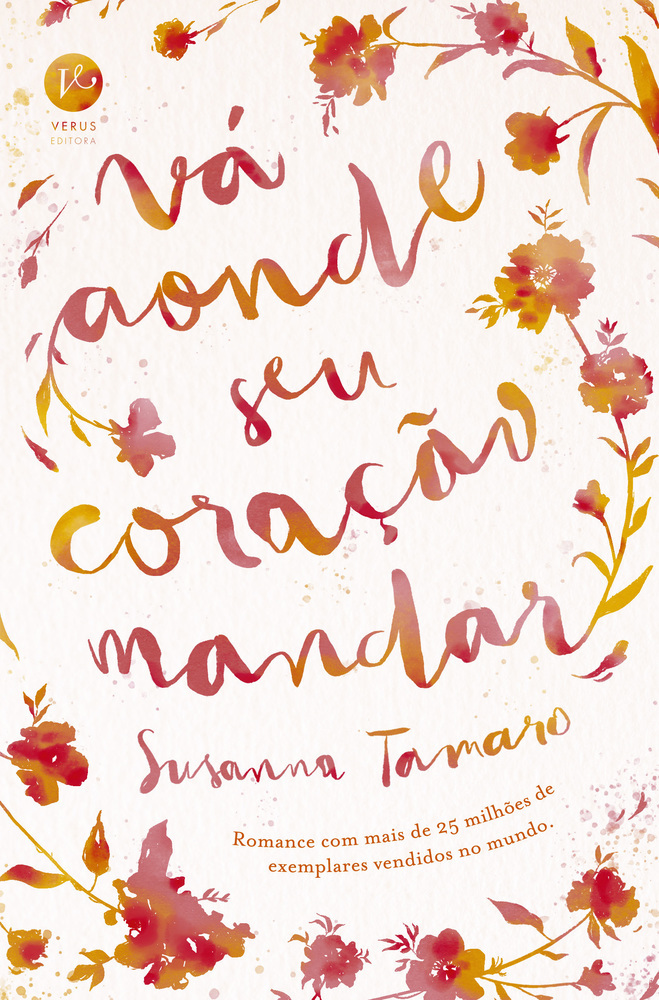 VE
VERUS
EDITORA
vá
aonde
seu
coração
mandar
Susanna Tamaro
Romance com mais de 25 milhões de
exemplares vendidos no mundo.